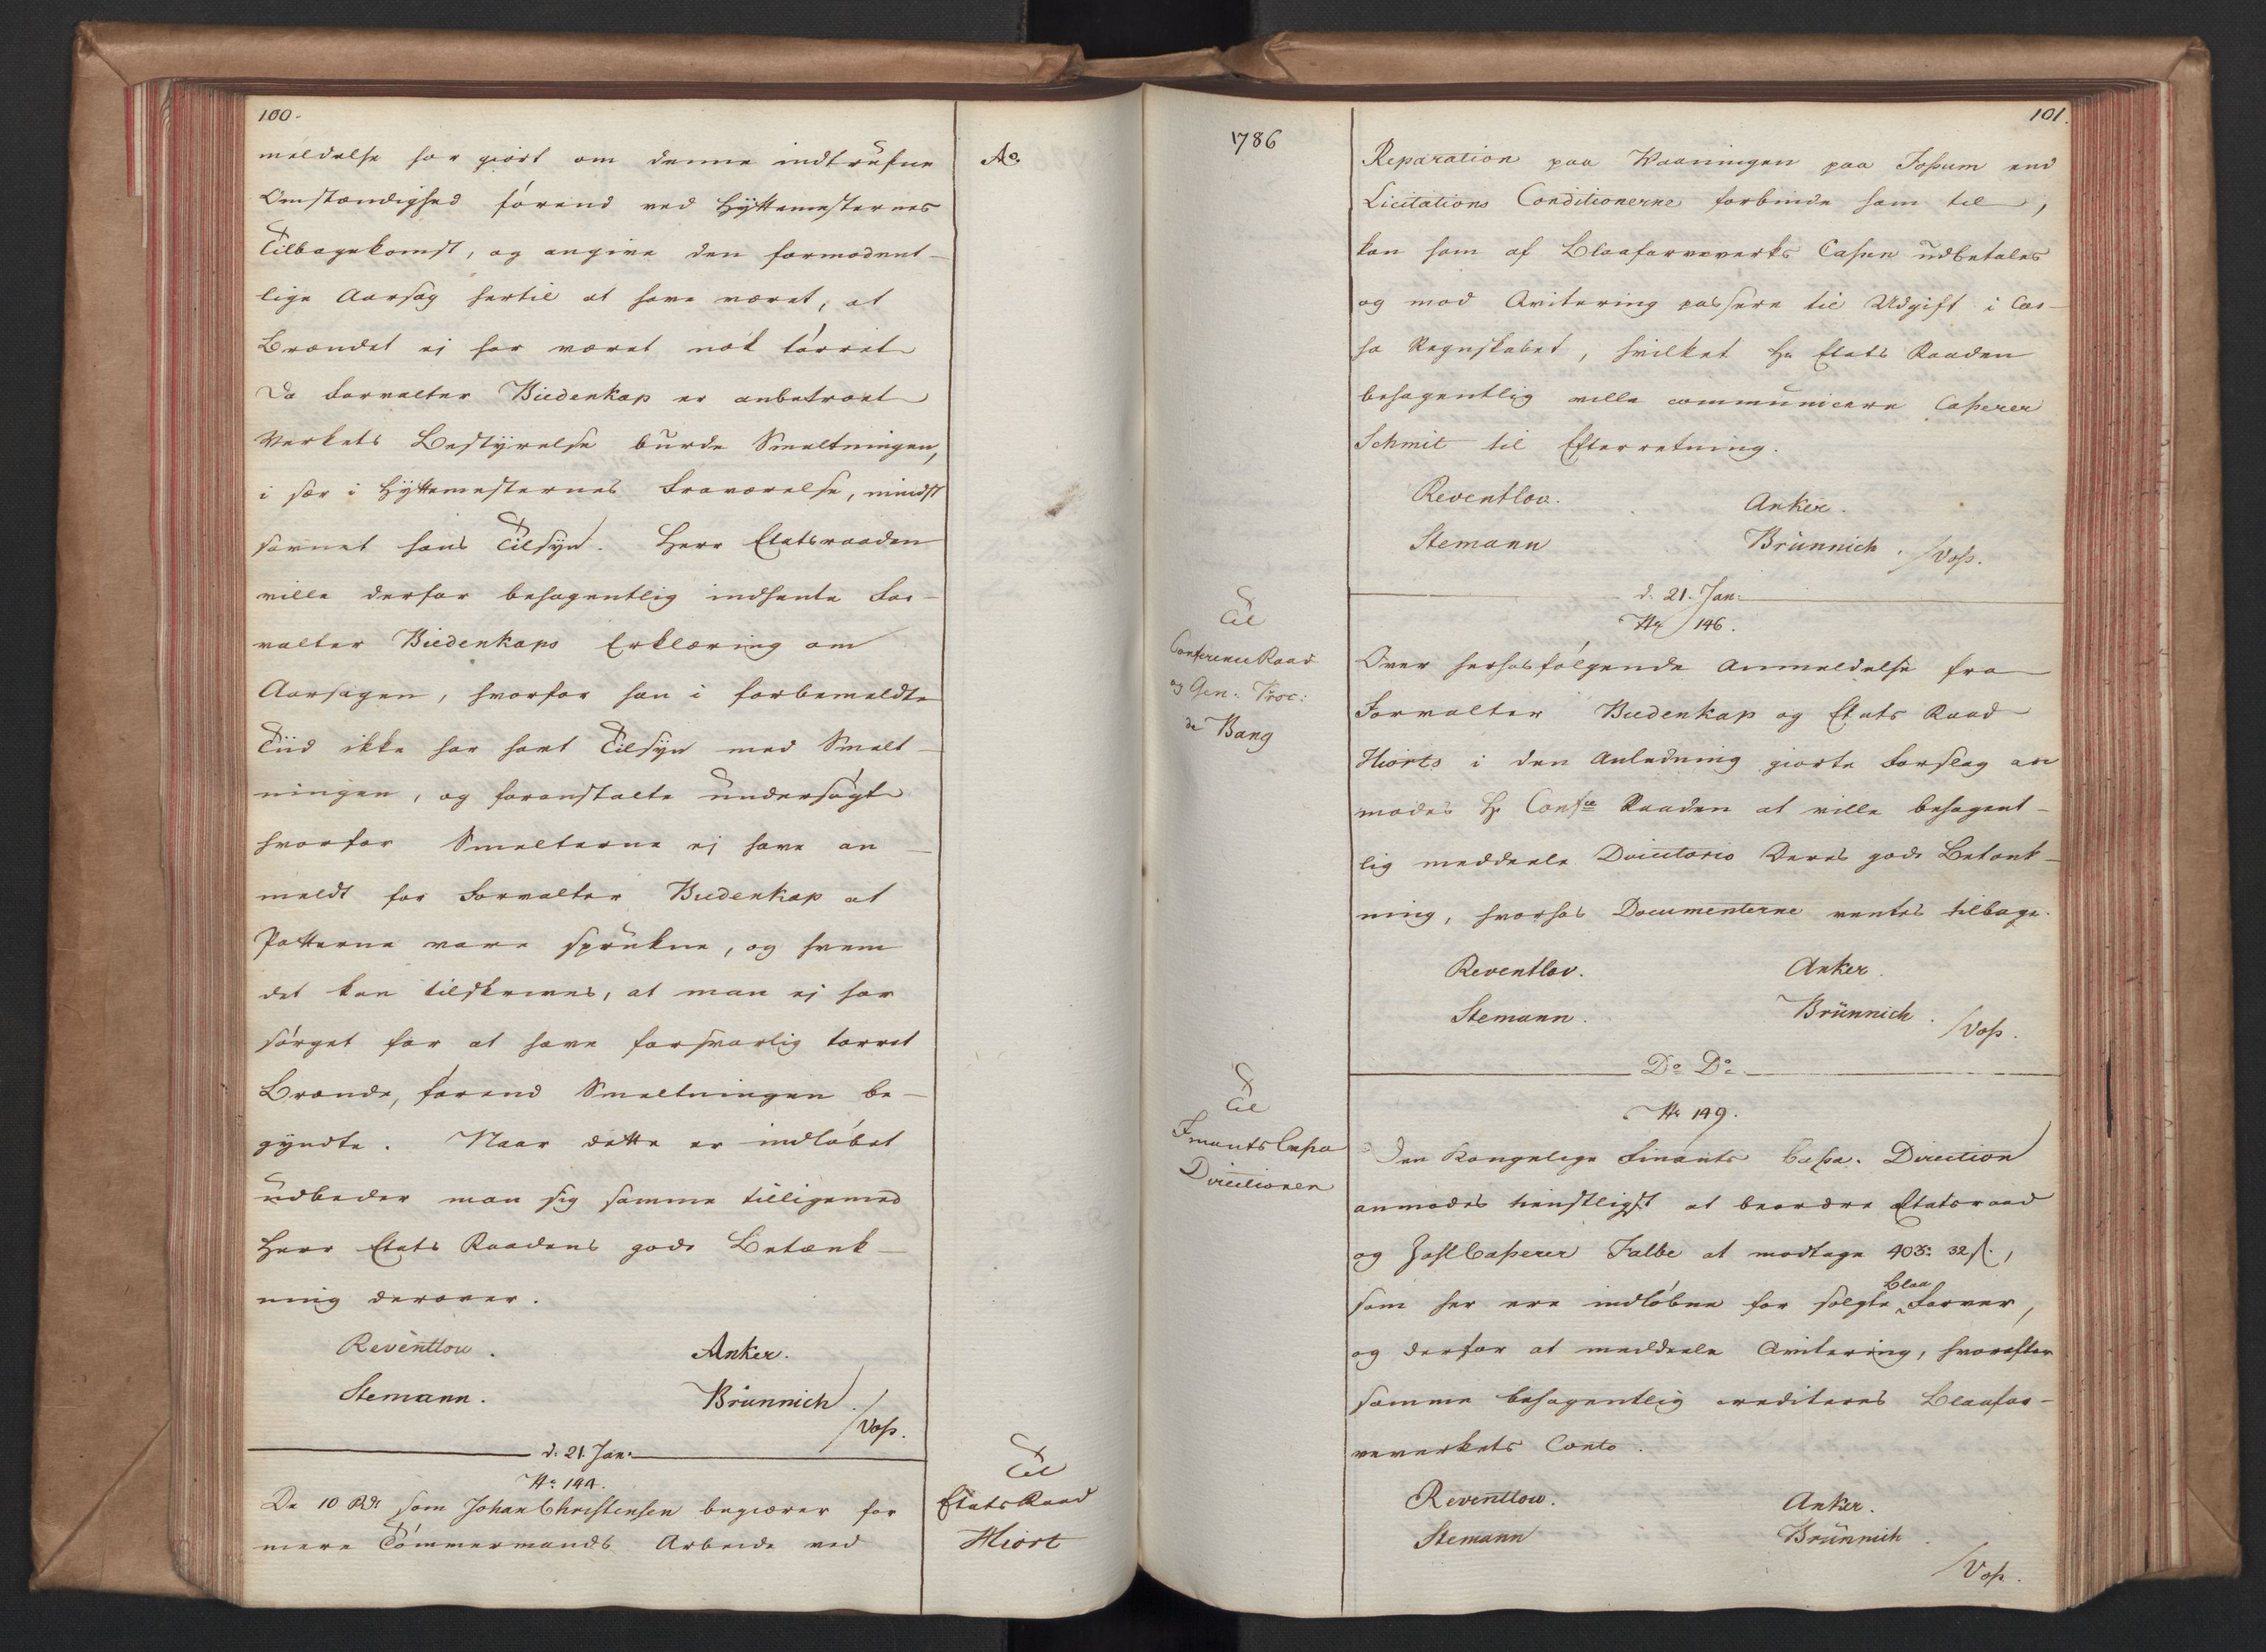 100.
Ao
meldelse har giort om denne indtrufne
Omstændighed förend ved Hyttemesternes
Tilbagekomst, og angive den formodent-
lige Aarsag hertil at have været, at
Brændet ej har været nok törret
Da Forvalter Biedenkap er anbetroet
Verkets Bestyrelse burde Smeltningen,
i sær i Hyttemesternes Fraværelse, mindst
savnet hans Tilsyn. Herr Etatsraaden
ville derfor behagentlig indhente For-
valter Biedenkaps Erklæring om
Aarsagen, hvorfor han i forbemeldte
Tiid ikke har havt Tilsyn med Smelt-
ningen, og foranstalte undersögt
hvorfor Smelterne ej have an-
meldt for Forvalter Biedenkap at
Potterne vare sprukne, og hvem
det kan tilskrives, at man ej har
sörget for at have forsvarlig tørret
Brænde, förend Smeltningen be-
gyndte. Naar dette er indlöbet
udbeder man sig samme tilligemed
Herr Etats Raadens gode Betænk-
ning derover.
Reventlow. Anker.
Stemann. Brünnich.
/Voss.
d. 21. Jan:
No 144.
Til
Etats Raad
Hiort
De 10 Rdr som Johan Christensen begiærer for
mere Tömmermands Arbeide ved
1786
101.
Reparation paa Vaaningen paa Fossum end
Licitations Conditionerne forbinde ham til,
kan ham af Blaafarveverks Cassen udbetales
og mod Qvitering passere til Udgift i Cas-
sa Regnskabet, hvilket Hr Etats Raaden
behagentlig ville communicere Casserer
Schmit til Efterretning.
Reventlow. Anker.
Stemann Brünnich. /Voss.
d. 21. Jan:
No 146.
Til
Conference Raad
og Gen. Proc:
de Bang
Over herhosfölgende Anmeldelse fra
Forvalter Biedenkap og Etats Raad
Hiorts i den Anledning giorte Forslag an
modes Hr Confce Raaden at ville behagent-
lig meddeele Directorio Deres gode Betænk-
ning, hvorhos Documenterne ventes tilbage.
Reventlov. Anker.
Stemann. Brünnich. /Voss.
Do Do
No 149.
Til
Finants Cassa
Directionen
Den Kongelige Finants Cassa Direction
anmodes tienstligst at beordre Etatsraad
og Zahl Casserer Falbe at modtage 403: 32 s.,
som her ere indlöbne for solgte Blaa Farver,
og derfor at meddeele Qvitering, hvorefter
samme behagentlig crediteres Blaafar-
veverkets Conto.
Reventlow. Anker.
Stemann Brünnich.
/Voss.